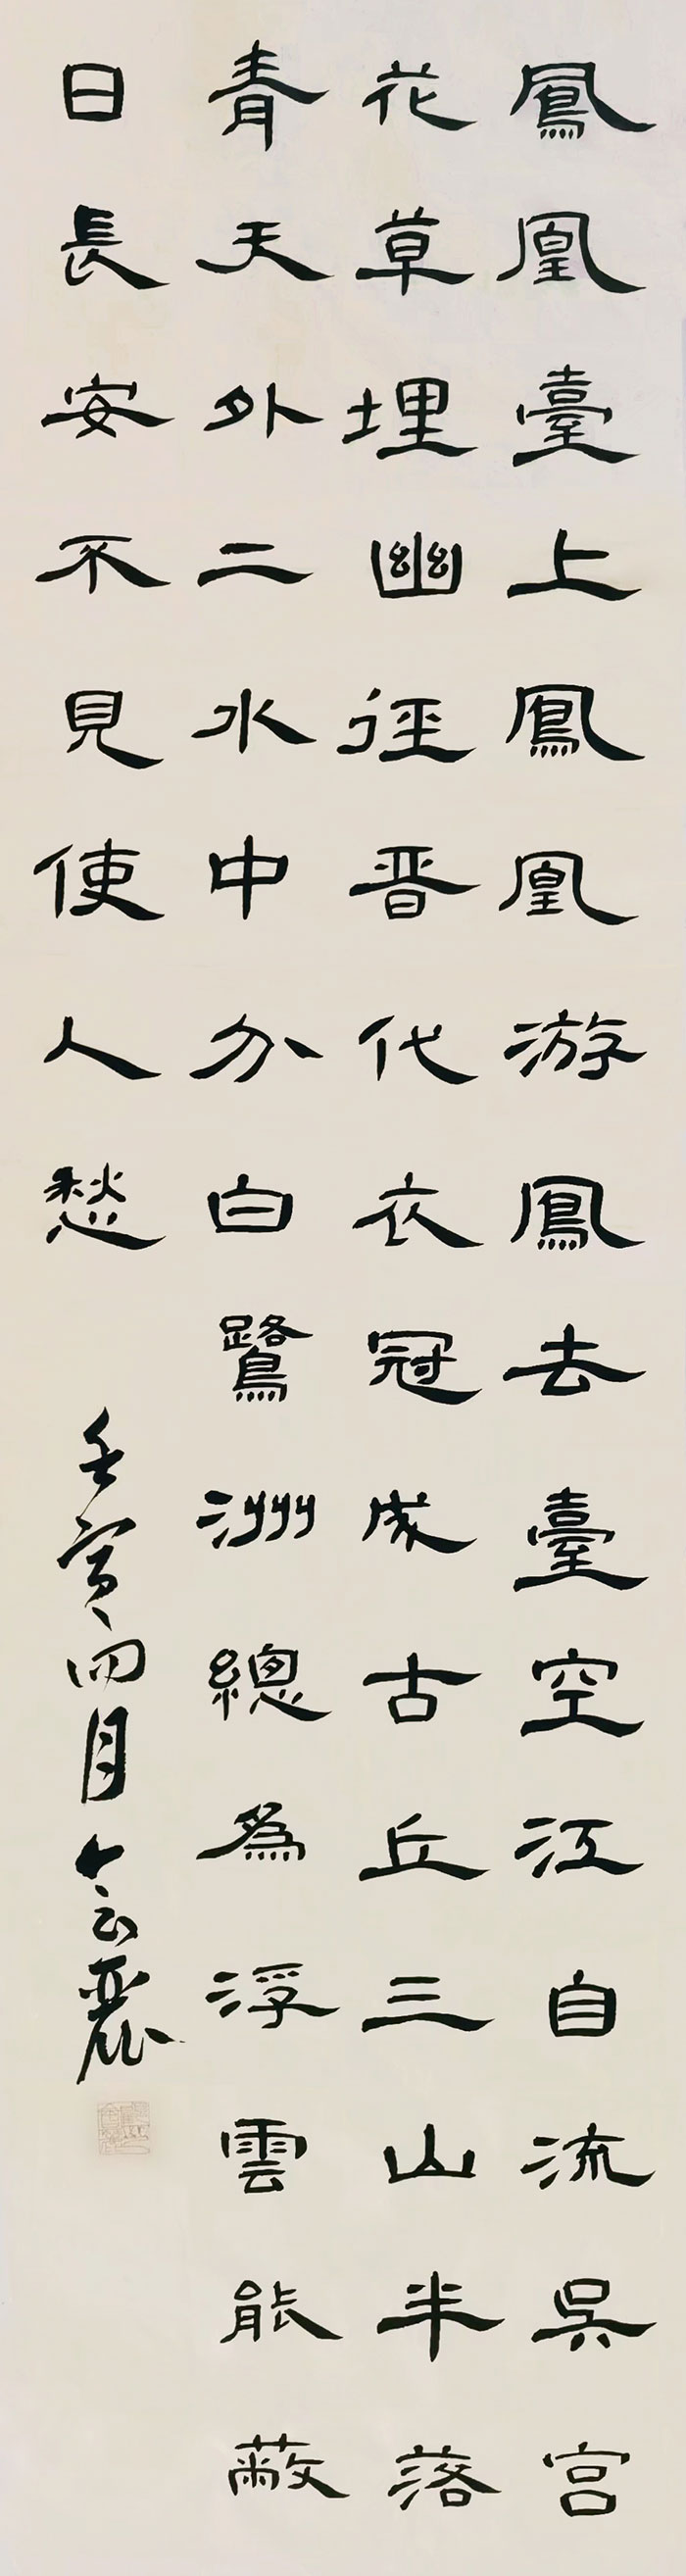 鳳凰臺上鳳凰游鳳去臺空江自流吳宮
花草埋幽徑晋代衣冠成古丘三山半落
青天外二水中分白鷺洲總爲浮雲能蔽
日長安不見使人愁
壬寅四月